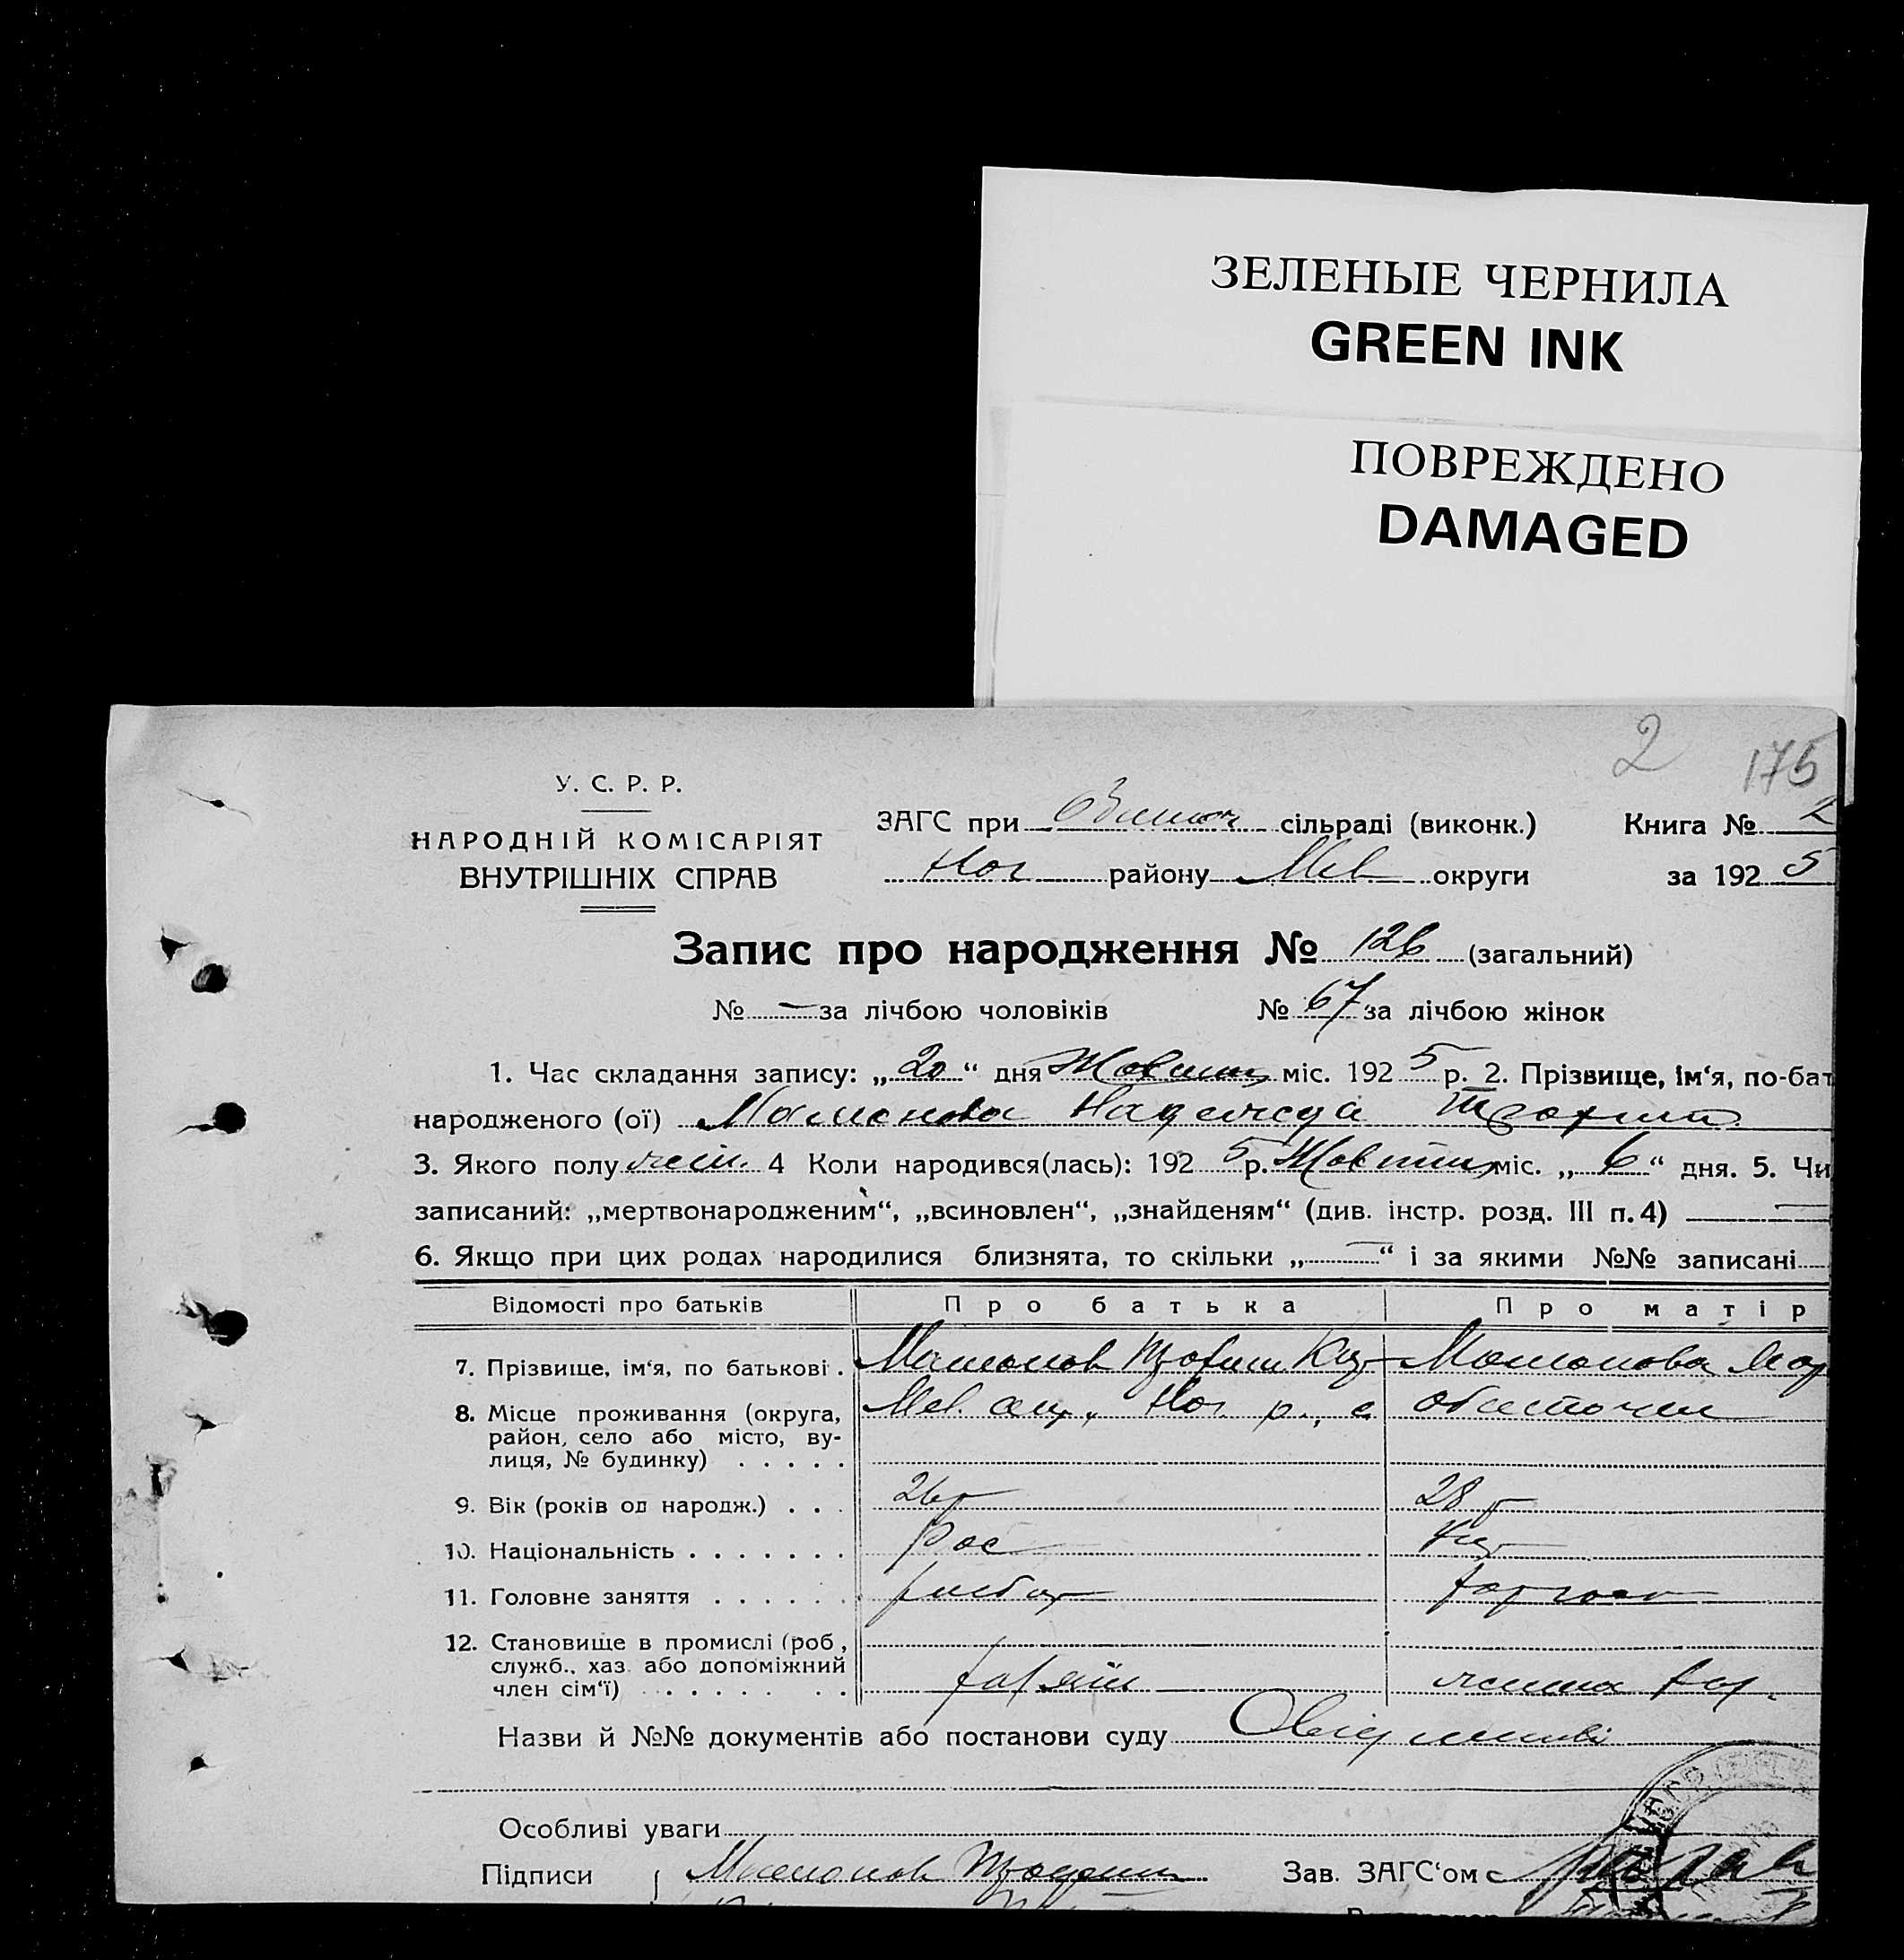 ЗЕЛЕНЫЕ ЧЕРНИЛА
GREEN INK
ПОВРЕЖДЕНО
DAMAGED
2 175
У. С. Р. Р.
НАРОДНІЙ КОМІСАРІЯТ
ВНУТРІШНІХ СПРАВ
ЗАГС при сільраді (виконк.) Книга № 2
Ног району Мел округи за 1925
Запис про народження № 126 (загальний)
№ — за лічбою чоловіків № 67 за лічбою жінок
1. Час складання запису: „20“ дня Жовтня міс. 1925 р. 2. Прізвище, ім‘я, по-бат
народженого (ої) Мамонова Надежда Трохим
3. Якого полу жін. 4 Коли народився(лась): 1925 р. Жовтня міс. „6“ дня. 5. Чи
записаний: „мертвонародженим“, „всиновлен“, „знайденям“ (див. інстр. розд. III п. 4) —
6. Якщо при цих родах народилися близнята, то скільки „—“ і за якими №№ записані
Відомості про батьків Про батька Про матір
7. Прізвище, ім‘я, по батькові . Мамонов Трохим Мамонова Мар
8. Місце проживання (округа, Мел. окр., Ног. р., с. Обиточне
район, село або місто, ву-
лиця, № будинку) . . . . .
9. Вік (років од народж.) . . . 26 р 28 р
10. Національність . . . . . . . Рос
11. Головне заняття . . . . . . рибар
12. Становище в промислі (роб ,
служб., хаз. або допоміжний
член сім‘ї) . . . . . . . . хазяїн жінка хаз.
Назви й №№ документів або постанови суду
Особливі уваги
Підписи Мамонов Трофим Зав. ЗАГС‘ом